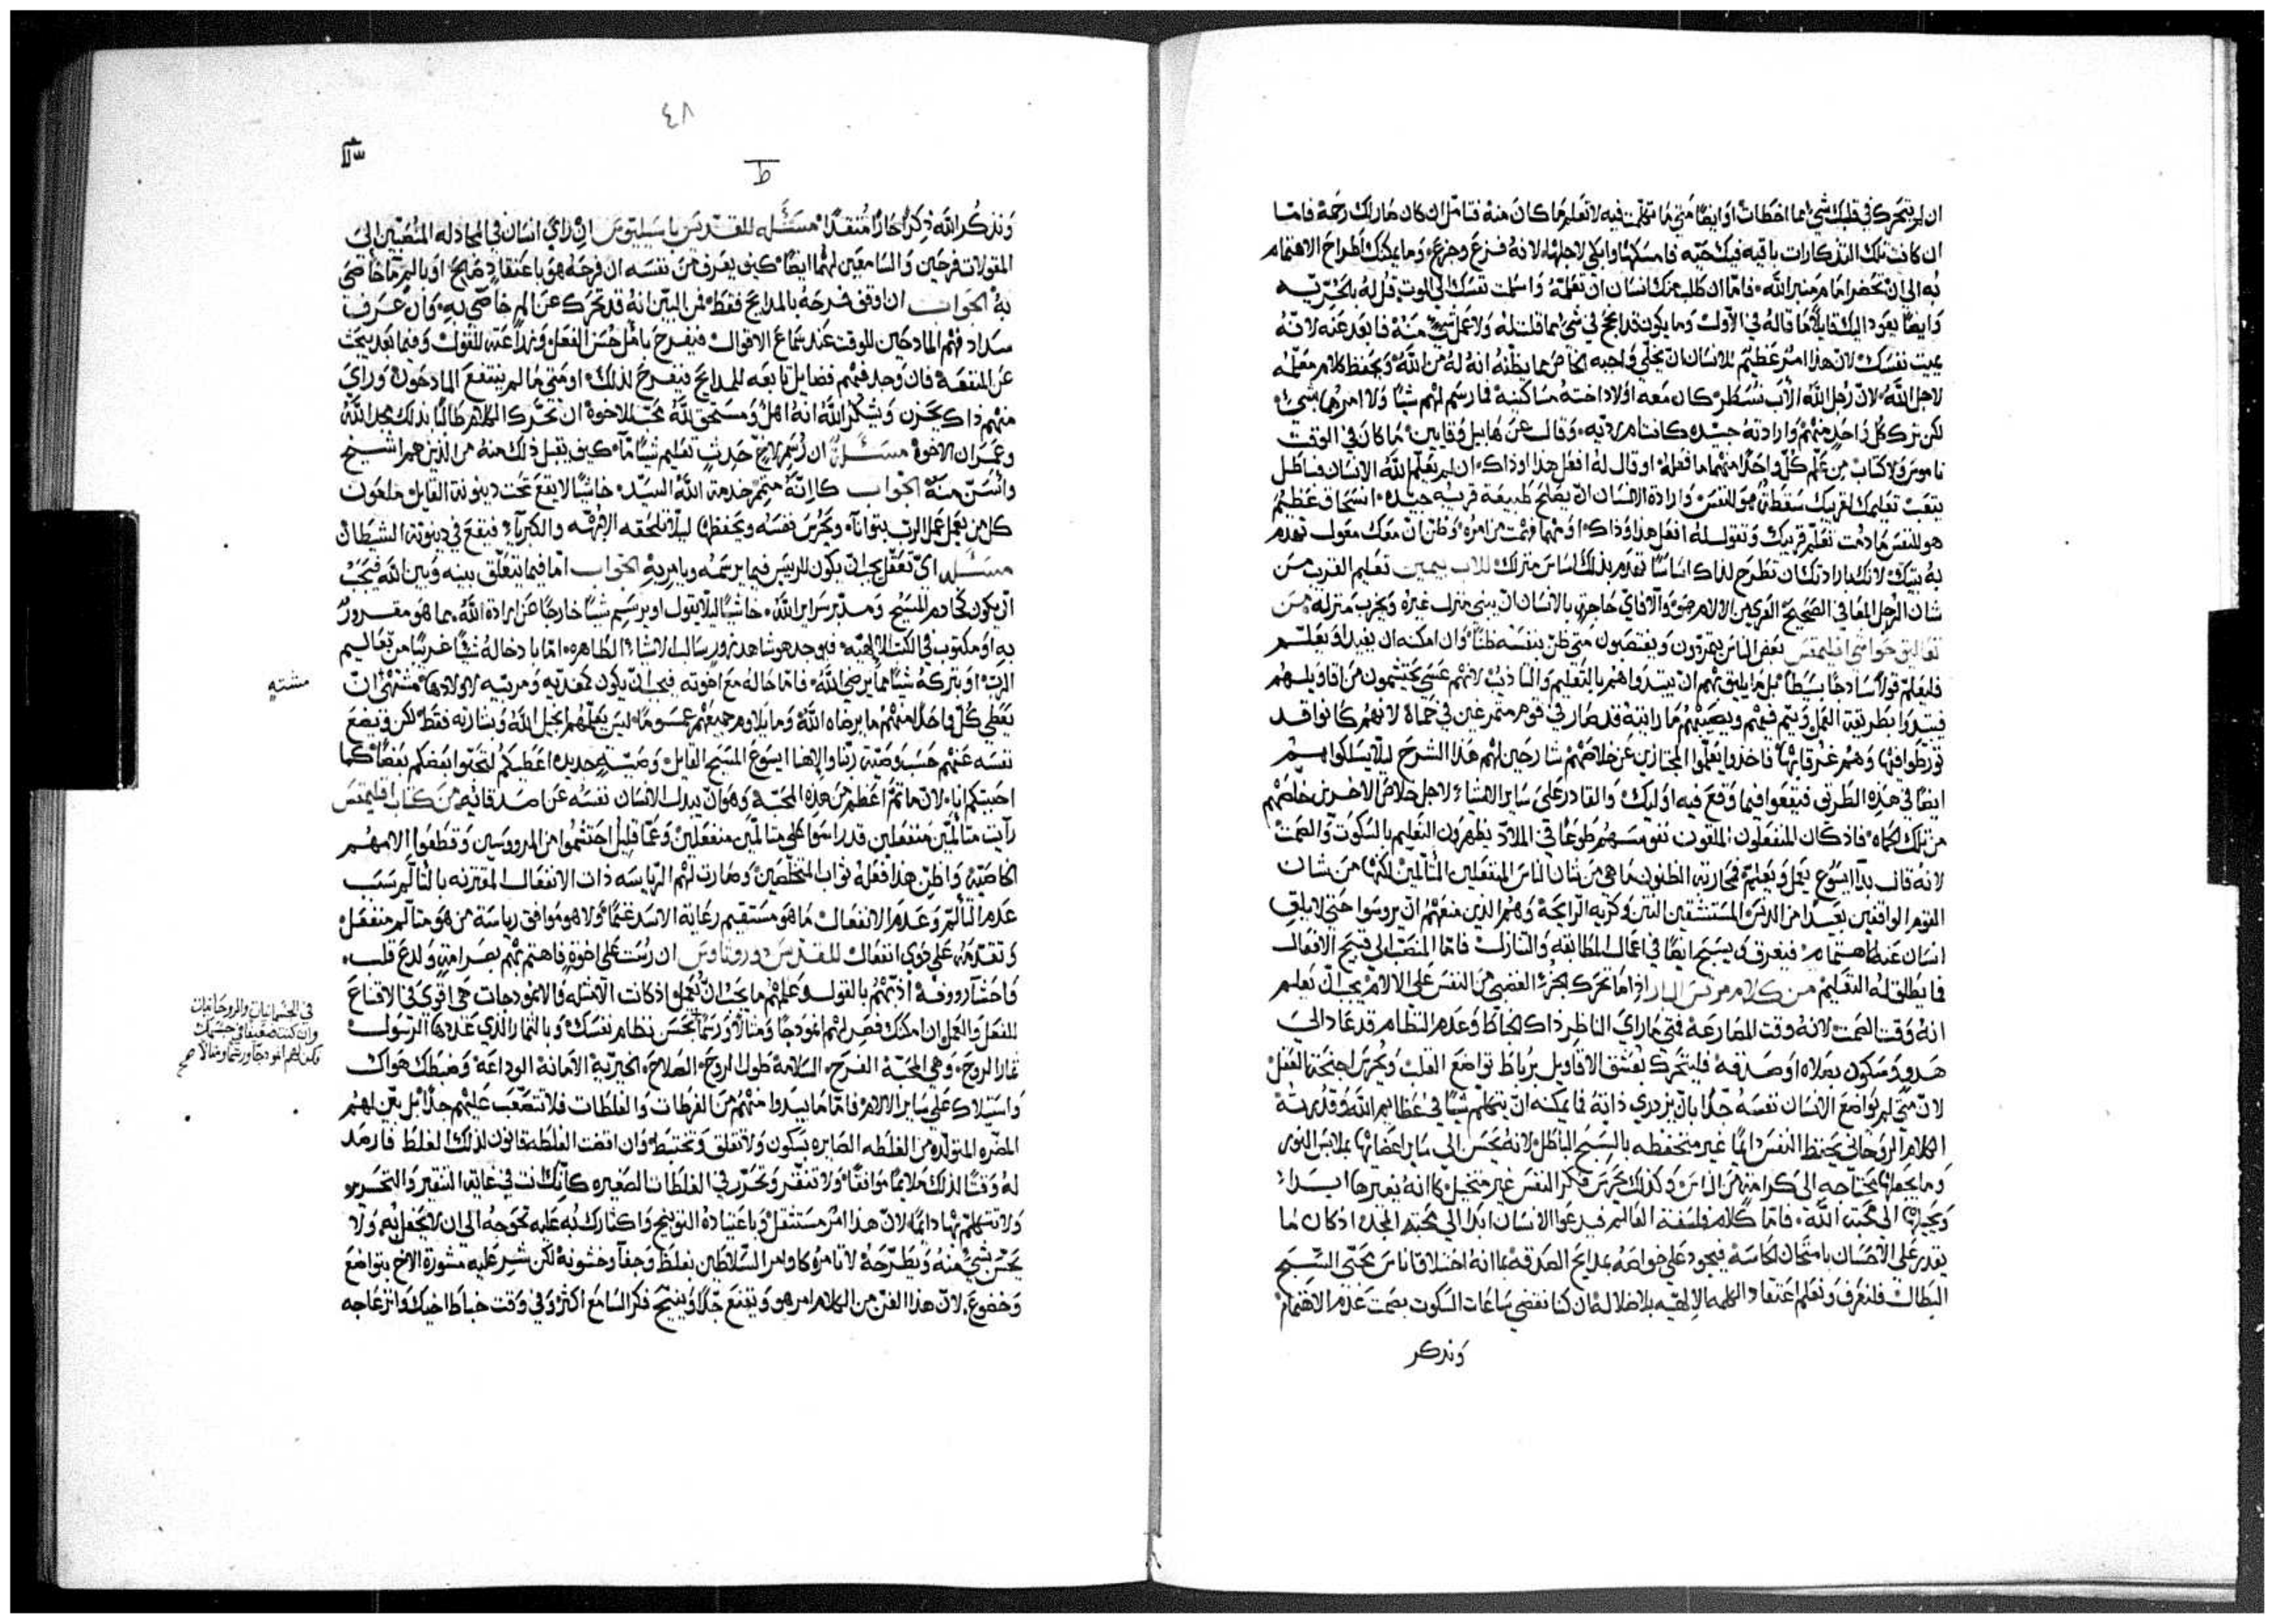 ان لم يتحرك في قلبك شي مما اخطات او ايضا متي ما تكلمت فيه لا تعلم ما كان منه فتامل ان كان صار لك رحمة فامّا
ان كانت تلك التذكارات باقيه فيك حيّه فامسكها وابكي لاجلها لانه فزع وجزع وما يمكنك اطراح الاهتمام
به الي ان تحضر امام منبر الله فامّا ان طلب منك انسان ان تعلّمه واسلمت نفسك الي الموت قل له بالحرّيه
وايضا يعود اليك قايلًا ما قاله في الاول وما يكون قد انجح في شي مما قلت له ولا عمل شي منه فابعد عنه لانه
يميت نفسك لان هذا امر عظيم للانسان ان يخلّي واجبه الخاص مما يظنه انه له من الله ويحفظ كلام معلّمه
لاجل الله لان رجل الله الاب نسطر كان معه اولاد اخته ساكنيه فما رسم لهم شيا ولا امرهم بشي
لكن ترك كل واحد منهم وارادته جيده كانت ام رديه وقال عن هابيل وقايين ما كان في الوقت
ناموس ولا كتاب من علّم كل واحد منهما ما فعله او قال له افعل هذا او ذاك ان لم يعلّم الله الانسان فباطل
يتعب تعليمك لقريبك سقطة هو للنفس وارادة الانسان ان يصلح طبيعة قريبه جيده انسحاق عظيم
هو للنفس ما دمت تعلّم قريبك وتقول له افعل هذا وذاك او مهما فهمت من امره وظن ان معك معول تهدم
به بيتك لانك بارادتك ان تطرح لذاك اساسًا تهدم بذلك اساس منزلك للاب بيمين تعليم القريب من
شان الرجل المعافي الصحيح العري من الالام ضو والا فاي حاجة بالانسان ان يبني منزل غيره ويخرب منزله من
تعاليق حواشي اقليمقس بعض الناس يتمردون ويغتصبون متي ظن بنفسه ظنًا وان امكنه ان يفيد او يعلّم
فليعلم قولًا ساذجًا بسيطًا بل ما يليق بهم ان يبتدوا هم بالتعليم والتاديب لانهم عسي يحتشمون من اقاويلهم
فيبتدوا بطريقة العمل ويتم فيهم ويصيبهم ما رايته قد صار في قوم متمرغين في حماة لانهم كانوا قد
تورطوا فيها وهم غرقا بها فاخذوا يعلّموا المجتازين عن خلاصهم شارحين لهم هذا الشرح ليلّا يسلكوا هم
ايضا في هذه الطريق فيقعوا فيما وقع فيه اوليك والقادر علي ساير الاشياء لاجل خلاص الاخرين خلصهم
من تلك الحماه فاذ كان المنفعلون الملقون نفوسهم طوعًا في الملاذ يظهرون التعليم بالسكوت والصمت
لانه قال بدا ايسوع يعمل ويعلّم محاربة الظنون ما هي من شان الناس المنفعلين المتالمين لكنها من شان
القوم الواقفين بعيدًا من الدنس المستنشقين النتن وكريه الرايحة وهم الذين منعهم ان يروسوا حتي لا يلق
انسان عنه الاهتمام فيعرف وان يسبح ايضا في اعمال الطايفه والتنازل فامّا المنصب الي قبيح الافعال
فما يطلق له التعليم من كلام مرقس البار اذا ما تحرك الجزء الغضبي من النفس علي الالام يجب ان يعلم
انه وقت الصمت لانه وقت المصارعة فمتي ما راي الناظر ذاك الخباط وعدم النظام قد عاد الي
هدوء وسكون بصلاه او صدقه فليتحرك بعشق الاقاويل برباط تواضع القلب ويحرس اجنحة العقل
لان متي لم يواضع الانسان نفسه جدًا بان يزدري ذاته فما يمكنه ان يتكلم شيًا في عظايم الله وقدرته
الكلام الروحاني يحفظ النفس دايمًا غير متحفظه بالسبح الباطل لانه يحسن الي ساير اعضايها بملابس النور
وما يجعلها تحتاج الي كرامة من الناس وكذلك يحرس فكر النفس غير متخيل كانه يغيرها ابدا
ويحيلها الي محبة الله فامّا كلام فلسفة العالم فيدعو الانسان ابدا الي محبة المجد اذ كان ما
يقدر علي الاحسان بامتحان الحاسه فيجود علي خواصه بمدايح الصدقه بما انه اختلاق اناس محبّي السبح
البطال فلنعرف ونعلم اعتقاد الكلمه الالهيّه بلا ضلاله ان كنا نقضي ساعات السكوت بصمت عدم الاهتمام
ونذكر
٤٨
ط
ونذكر الله ذكرًا حارًا متقدًا مسئله للقديس باسيليوس ان راي انسان في المجادله المنصتين الي
المقولات فرحين والسامعين لهما ايضا كيف يعرف من نفسه ان فرحه هو باعتقاد صالح او بالم ما خاصّي
به الجواب ان اوقف فرحه بالمدايح فقط فمن البيّن انه قد تحرك عن الم خاصّي به وان عرف
سداد فهم المادحين للوقت عند سماع الاقوال فيفرح بامل حسن الفعل وفيما بعد يبحث
عن المنفعة فان وجد فيهم فضايل تابعه للمدايح فيفرح لذلك او متي ما لم ينتفع المادحون وراي
منهم ذاك يحزن ويشكر الله انه اهل ومستحق لمحبة الاخوة ان تحرك الكلام طالبًا بذلك مجد الله
وعمران الاخوة مسئله ان رسم لاخ حدث تعليم شيا ما كيف يقبل ذلك منه من الذين هم اشيخ
واسن منه الجواب كانه متمم خدمة الله السيّد خاشيًا لا يقع تحت دينونة القايل ملعون
كل من يعمل عمل الرب بتوانا ويحرس نفسه ويحفظها ليلّا تلحقه الانفه والكبرياء فيقع في دينونة الشيطان
مسئله اي تعقّل يجب ان يكون للرييس فيما يرسمه ويامر به الجواب امّا فيما يتعلّق بينه وبين الله فيجب
ان يكون كخادم المسيح ومدبر سراير الله خاشيًا ليلّا يقول او يرسم شيًا خارجًا عن ارادة الله مما هو مقرور
به او مكتوب في الكتب الالهيّه فيوجد هو شاهد زور سالب الاشياء الطاهره امّا بادخاله شيًا غريبًا من تعاليم
الرب او بتركه شيًا مما يرضي الله فامّا حاله مع اخوته فيجب ان يكون كمغذيه ومربيه لاولادها مشتهي ان
يعطي كل واحد منهم ما يرضاه الله وما يلاوم جميعهم عمومًا ليس يعلّمهم انجيل الله وبشارته فقط لكن ويضع
نفسه عنهم حسب وصيّة ربّنا والاهنا ايسوع المسيح القايل وصيّة جديده اعطيكم لتحبّوا بعضكم بعضًا كما
احببتكم انا لان ما تمّ اعظم من هذه المحبّة وهو ان يبدل الانسان نفسه عن اصدقايه من كتاب اقليمقس
رايت متالمين منفعلين قد راسوا علي متالمين منفعلين وعمّا قليل احتشموا من المروسين وقطعوا الامهم
الخاصيّه واظن هذا فعله ثواب المتخلصين وصارت لهم الرياسه ذات الانفعال المقترنه بالتالم سبب
عدم التالم وعدم الانفعال ما هو مستقيم رعاية الاسد غنمًا ولا هو موافق رياسة من هو متالم منفعل
وتقدّمه علي ذوي انفعال للقديس دوروثاوس ان رست علي اخوة فاهتم بهم بصرامة ولدع قلب
واحشا رووفة ادّبهم بالقول وعلمهم ما يجب ان يُعمل اذ كانت الامثله والانموذجات هي اقوي في الاقناع
للفعل والعمل ان امكنك فصر لهم انموذجًا ومثالًا ورسمًا بحسن نظام نفسك وبالثمار الذي عددها الرسول
ثمار الروح وهي المحبّة الفرح السلامة طول الروح الصلاح الخيريّة الامانة الوداعة وضبطك هواك
واستيلاك علي ساير الالام فامّا ما يبدوا منهم من الفرطات والغلطات فلا تتصعّب عليهم جدًا بل بيّن لهم
المضره المتولّده من الغلطه الصايره بسكون ولا تقلق وتختبط وان اقتضت الغلطه قانون لذلك الغلط فارصد
له وقتًا لذلك ملايمًا موافقًا ولا تنقّر وتحرّر في الغلطات الصغيره كانك انت في غاية التنقير والتحرير
ولا تتكلّم بها دايمًا لان هذا امر مستثقل وباعتياده التوبيخ واكثارك به عليه تحوجه الي ان لا يحفل به ولا
يحسّ بشي منه ويطّرحه لا تامره كاوامر السلاطين بغلظ وجفا وخشونة لكن شير عليه مشورة الاخ بتواضع
وخضوع لان هذا الفن من الكلام امر هو ويقنع جدًا وينيّح فكر السامع اكثر وفي وقت خباط اخيك وانزعاجه
مشتهٍ
في الجسمانيات والروحانيات
وان كنت ضعيفًا في جسمك
فكن لهم انموذجًا ورسمًا ومثالًا صح